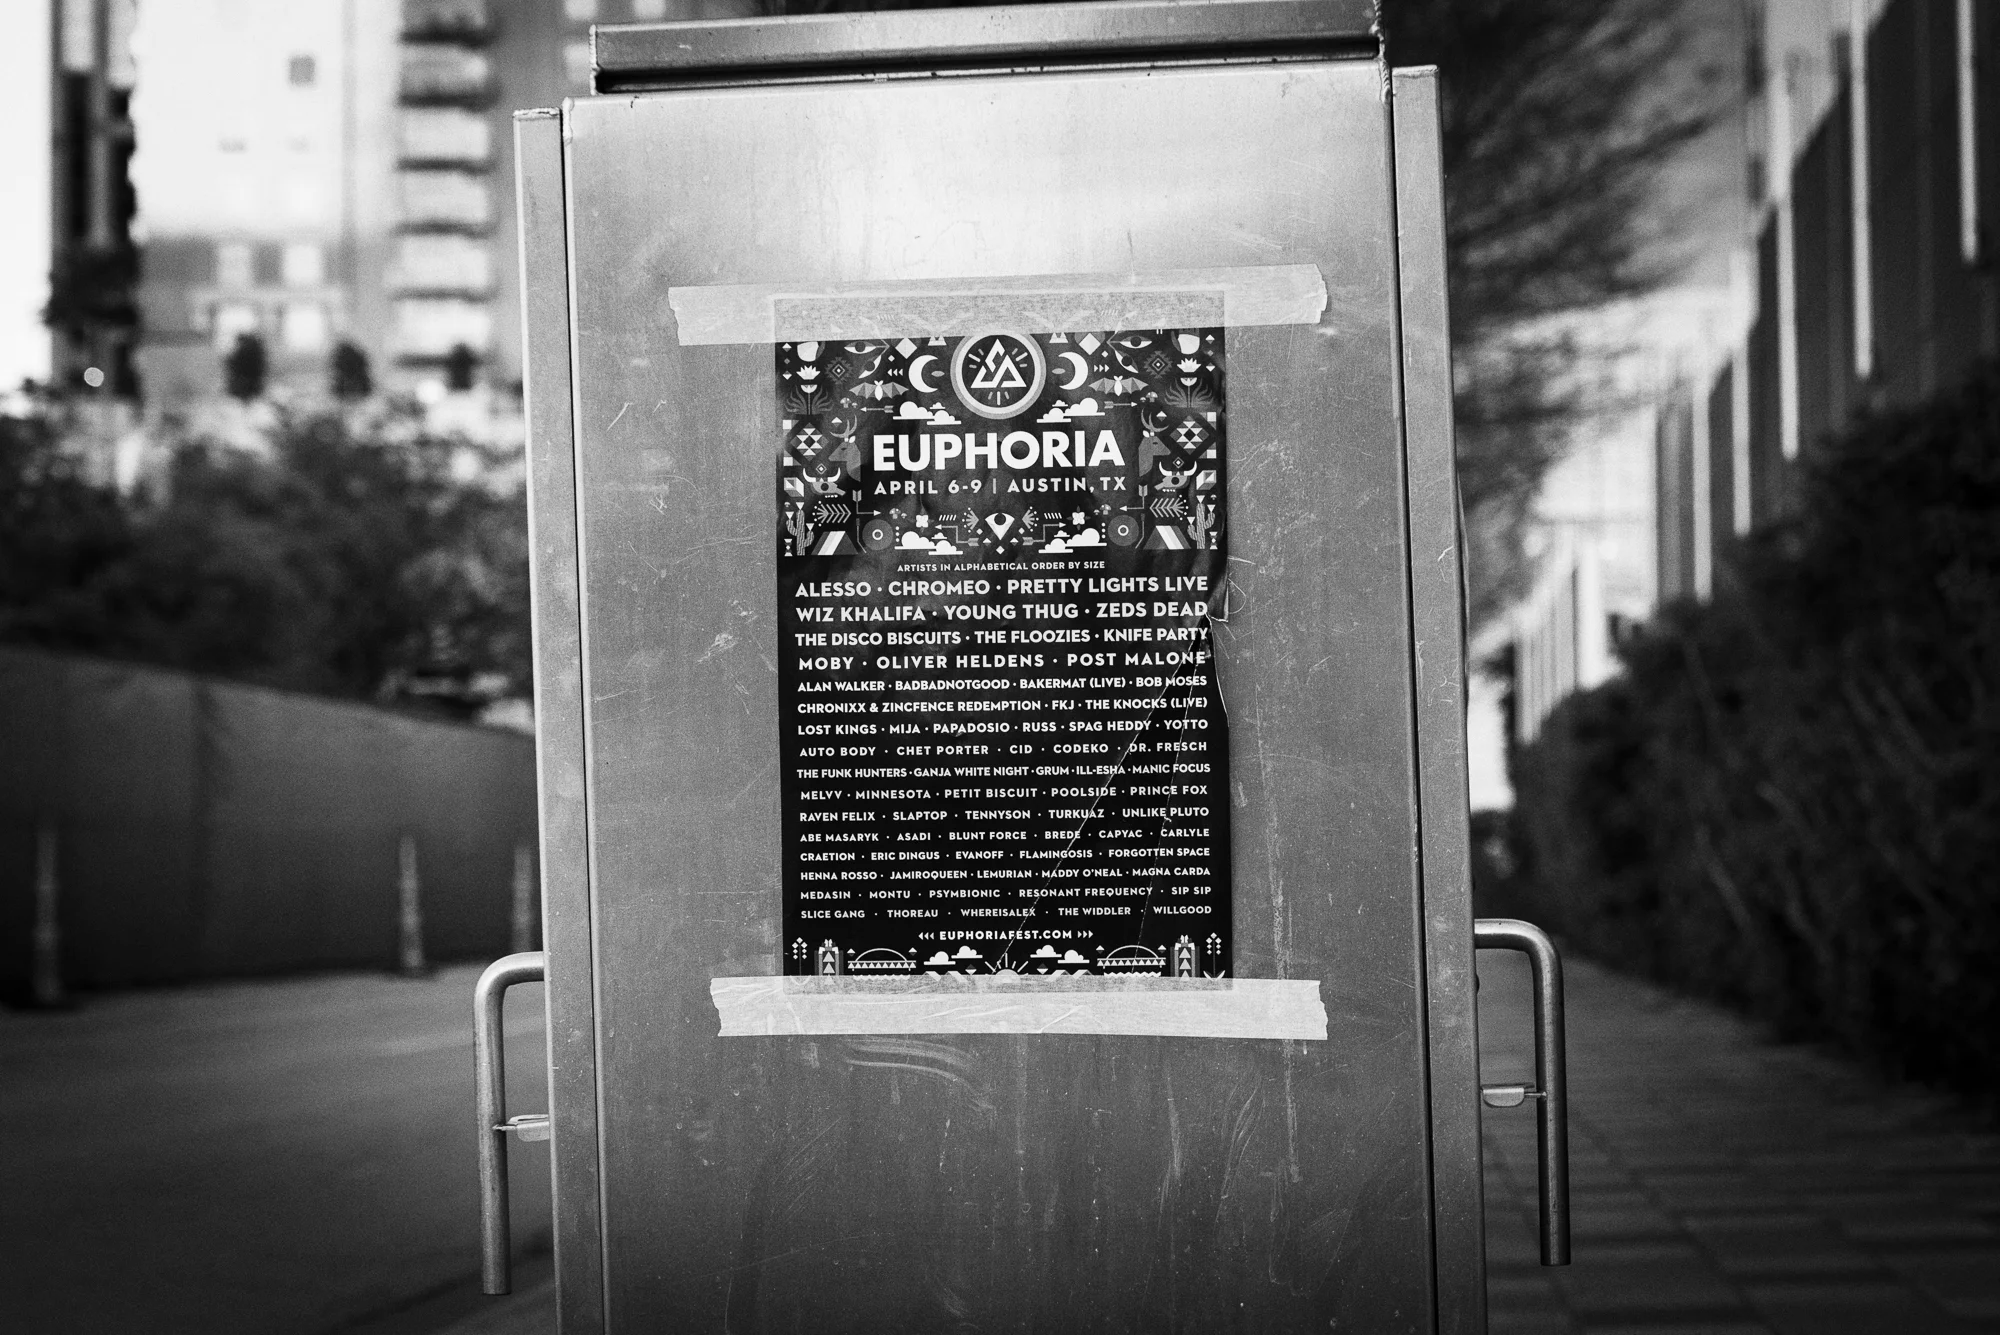 EUPHORIA
APRIL 6-9 | AUSTIN, TX
ARTISTS IN ALPHABETICAL ORDER BY SIZE
ALESSO · CHROMEO · PRETTY LIGHTS LIVE
WIZ KHALIFA · YOUNG THUG · ZEDS DEAD
THE DISCO BISCUITS · THE FLOOZIES · KNIFE PARTY
MOBY · OLIVER HELDENS · POST MALONE
ALAN WALKER · BADBADNOTGOOD · BAKERMAT (LIVE) · BOB MOSES
CHRONIXX & ZINCFENCE REDEMPTION · FKJ · THE KNOCKS (LIVE)
LOST KINGS · MIJA · PAPADOSIO · RUSS · SPAG HEDDY · YOTTO
AUTO BODY · CHET PORTER · CID · CODEKO · DR. FRESCH
THE FUNK HUNTERS · GANJA WHITE NIGHT · GRUM · ILL-ESHA · MANIC FOCUS
MELVV · MINNESOTA · PETIT BISCUIT · POOLSIDE · PRINCE FOX
RAVEN FELIX · SLAPTOP · TENNYSON · TURKUAZ · UNLIKE PLUTO
ABE MASARYK · ASADI · BLUNT FORCE · BREDE · CAPYAC · CARLYLE
CRAETION · ERIC DINGUS · EVANOFF · FLAMINGOSIS · FORGOTTEN SPACE
HENNA ROSSO · JAMIROQUEEN · LEMURIAN · MADDY O'NEAL · MAGNA CARDA
MEDASIN · MONTU · PSYMBIONIC · RESONANT FREQUENCY · SIP SIP
SLICE GANG · THOREAU · WHEREISALEX · THE WIDDLER · WILLGOOD
EUPHORIAFEST.COM